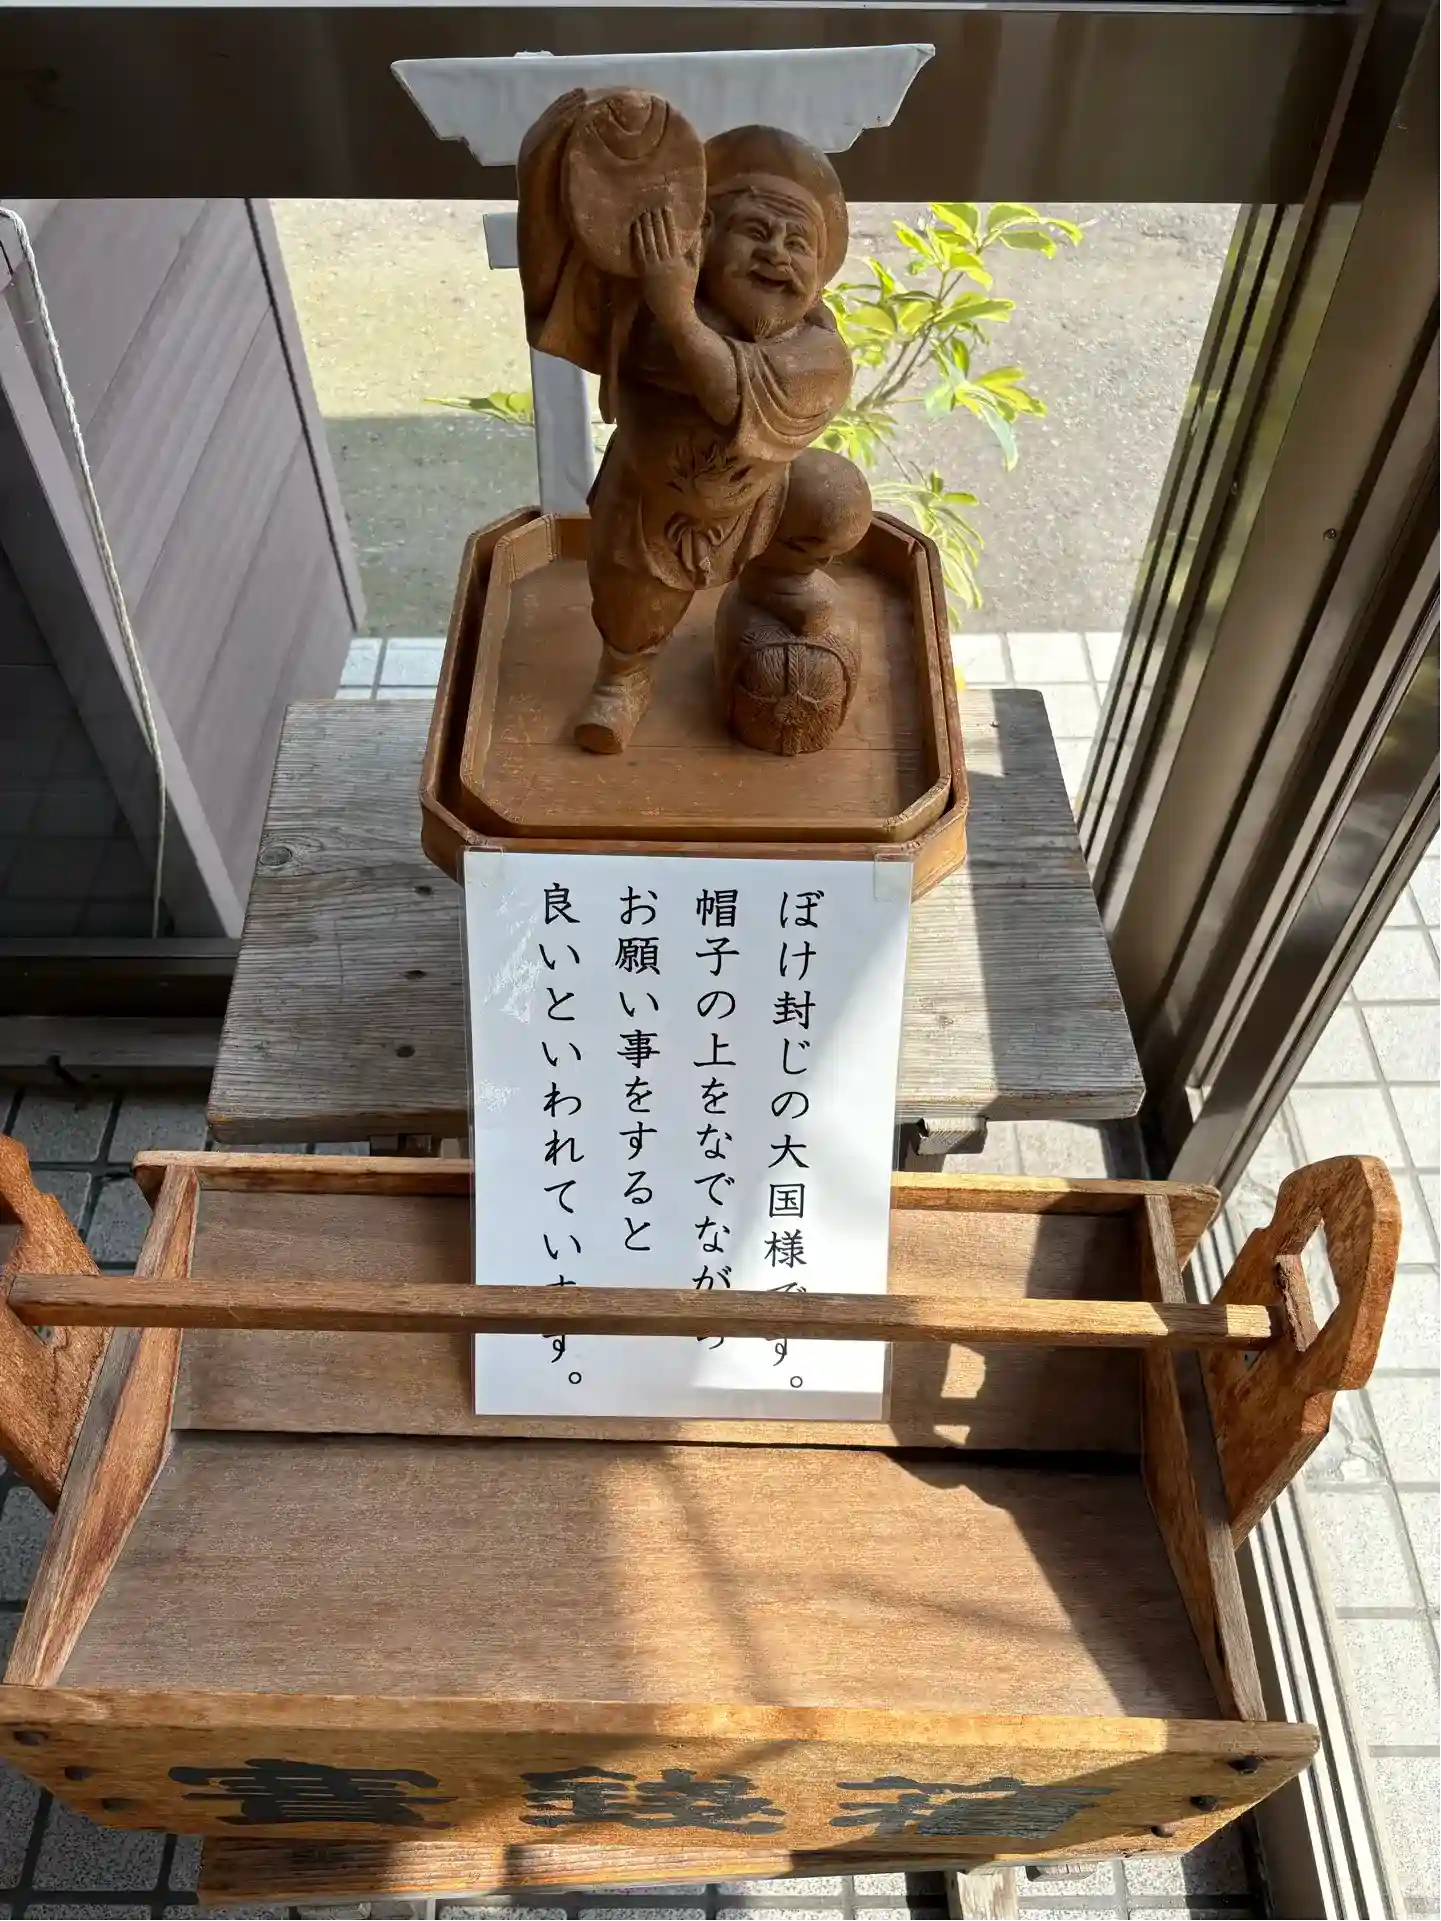 ぼけ封じの大国様です。
帽子の上をなでながら
お願い事をすると
良いといわれています。
賽銭箱